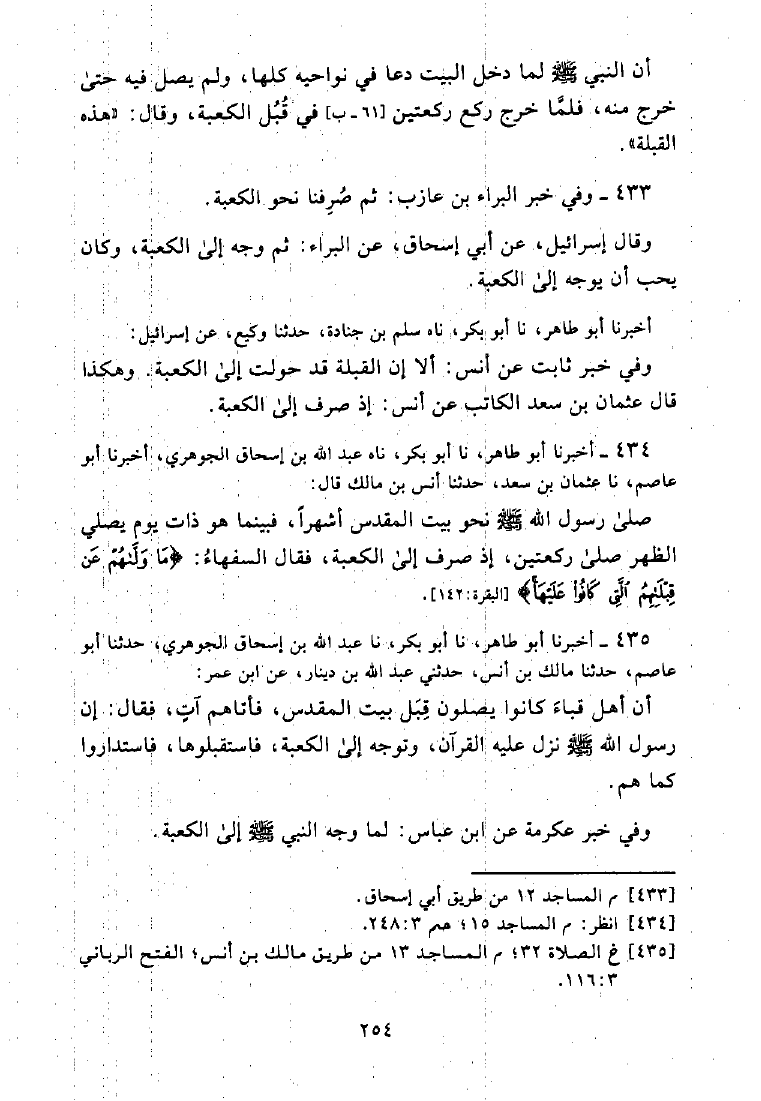 أن النبي ﷺ لما دخل البيت دعا في نواحيه كلها، ولم يصل فيه حتىٰ
خرج منه، فلمَّا خرج ركع ركعتين [٦١ ـ ب] في قُبُل الكعبة، وقال: «هذه
القبلة».
٤٣٣ ـ وفي خبر البراء بن عازب: ثم صُرِفنا نحو الكعبة.
وقال إسرائيل، عن أبي إسحاق، عن البراء: ثم وجه إلىٰ الكعبة، وكان
يحب أن يوجه إلىٰ الكعبة.
أخبرنا أبو طاهر، نا أبو بكر، ناه سلم بن جنادة، حدثنا وكيع، عن إسرائيل:
وفي خبر ثابت عن أنس: ألا إن القبلة قد حولت إلىٰ الكعبة. وهكذا
قال عثمان بن سعد الكاتب عن أنس: إذ صرف إلىٰ الكعبة.
٤٣٤ ـ أخبرنا أبو طاهر، نا أبو بكر، ناه عبد الله بن إسحاق الجوهري، أخبرنا أبو
عاصم، نا عثمان بن سعد، حدثنا أنس بن مالك قال:
صلىٰ رسول الله ﷺ نحو بيت المقدس أشهراً، فبينما هو ذات يوم يصلي
الظهر صلىٰ ركعتين، إذ صرف إلىٰ الكعبة، فقال السفهاءُ: ﴿مَا وَلَّىٰهُمْ عَن
قِبْلَتِهِمُ ٱلَّتِى كَانُوا۟ عَلَيْهَا﴾ [البقرة:١٤٢].
٤٣٥ ـ أخبرنا أبو طاهر، نا أبو بكر، نا عبد الله بن إسحاق الجوهري، حدثنا أبو
عاصم، حدثنا مالك بن أنس، حدثني عبد الله بن دينار، عن ابن عمر:
أن أهل قباءَ كانوا يصلون قِبَل بيت المقدس، فأتاهم آتٍ، فقال: إن
رسول الله ﷺ نزل عليه القرآن، وتوجه إلىٰ الكعبة، فاستقبلوها، فاستداروا
كما هم.
وفي خبر عكرمة عن ابن عباس: لما وجه النبي ﷺ إلىٰ الكعبة.
[٤٣٣] م المساجد ١٢ من طريق أبي إسحاق.
[٤٣٤] انظر: م المساجد ١٥؛ حم ٣:‏٢٤٨.
[٤٣٥] خ الصلاة ٣٢؛ م المساجد ١٣ من طريق مالك بن أنس؛ الفتح الرباني
٣:‏١١٦.
٢٥٤